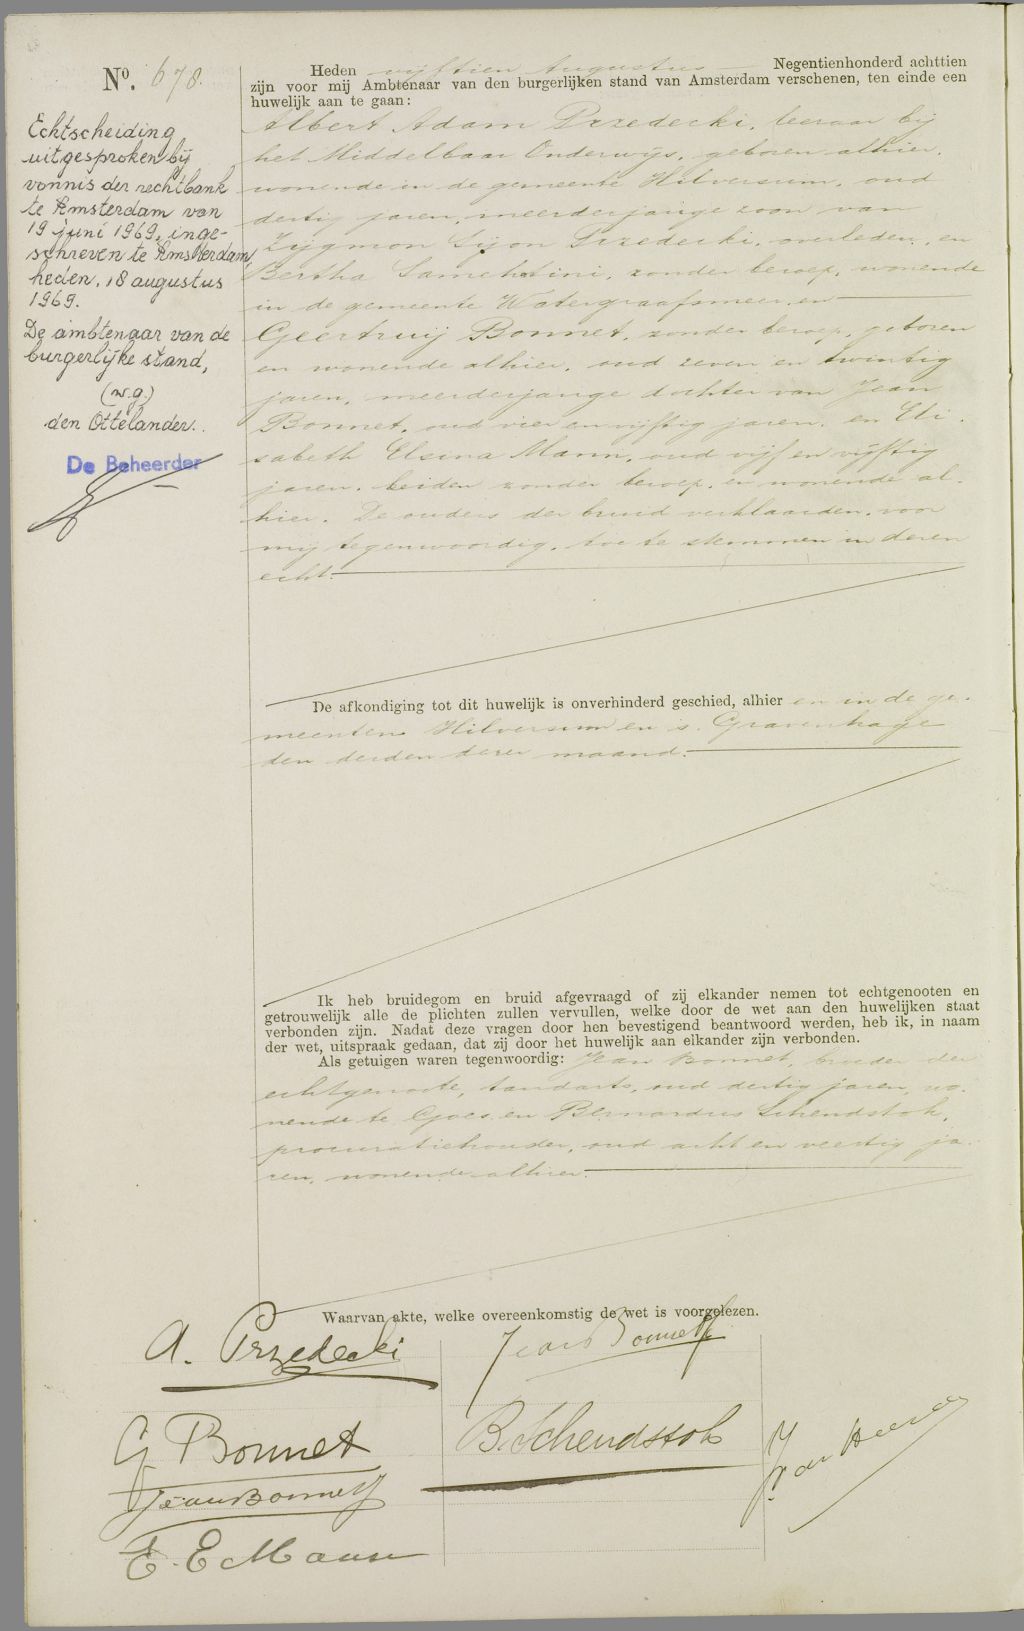 No. 678.
Echtscheiding
uitgesproken bij
vonnis der rechtbank
te Amsterdam van
19 juni 1969, inge-
schreven te Amsterdam,
heden, 18 augustus
1969.
De ambtenaar van de
burgerlijke stand,
(w.g.)
den Ottelander.
De Beheerder
Heden vijftien Augustus Negentienhonderd achttien
zijn voor mij Ambtenaar van den burgerlijken stand van Amsterdam verschenen, ten einde een
huwelijk aan te gaan:
Albert Adam Przedecki, leeraar bij
het Middelbaar Onderwijs, geboren alhier,
wonende in de gemeente Hilversum, oud
dertig jaren, meerderjarige zoon van
Zygmon Przedecki, overleden, en
Bertha Samehtini, zonder beroep, wonende
in de gemeente Watergraafsmeer, en
Geertruij Bonnet, zonder beroep, geboren
en wonende alhier, oud zeven en twintig
jaren, meerderjarige dochter van Jean
Bonnet, oud vier en vijftig jaren, en Eli-
sabeth Elsina Mann, oud vijf en vijftig
jaren, beiden zonder beroep, en wonende al-
hier. De ouders der bruid verklaarden, voor
mij tegenwoordig, toe te stemmen in deren
echt.
De afkondiging tot dit huwelijk is onverhinderd geschied, alhier en in de ge-
meenten Hilversum en 's Gravenhage
den derden dezer maand.
Ik heb bruidegom en bruid afgevraagd of zij elkander nemen tot echtgenooten en
getrouwelijk alle de plichten zullen vervullen, welke door de wet aan den huwelijken staat
verbonden zijn. Nadat deze vragen door hen bevestigend beantwoord werden, heb ik, in naam
der wet, uitspraak gedaan, dat zij door het huwelijk aan elkander zijn verbonden.
Als getuigen waren tegenwoordig: Jean Bonnet, broeder der
echtgenoote, tandarts, oud dertig jaren, wo-
nende te Goes, en Bernardus Schendstok,
procuratiehouder, oud acht en veertig ja-
ren, wonende alhier.
Waarvan akte, welke overeenkomstig de wet is voorgelezen.
A. Przedecki
Jean Bonnet
G Bonnet
B. Schendstok
Jean Bonnet
E. E Mann